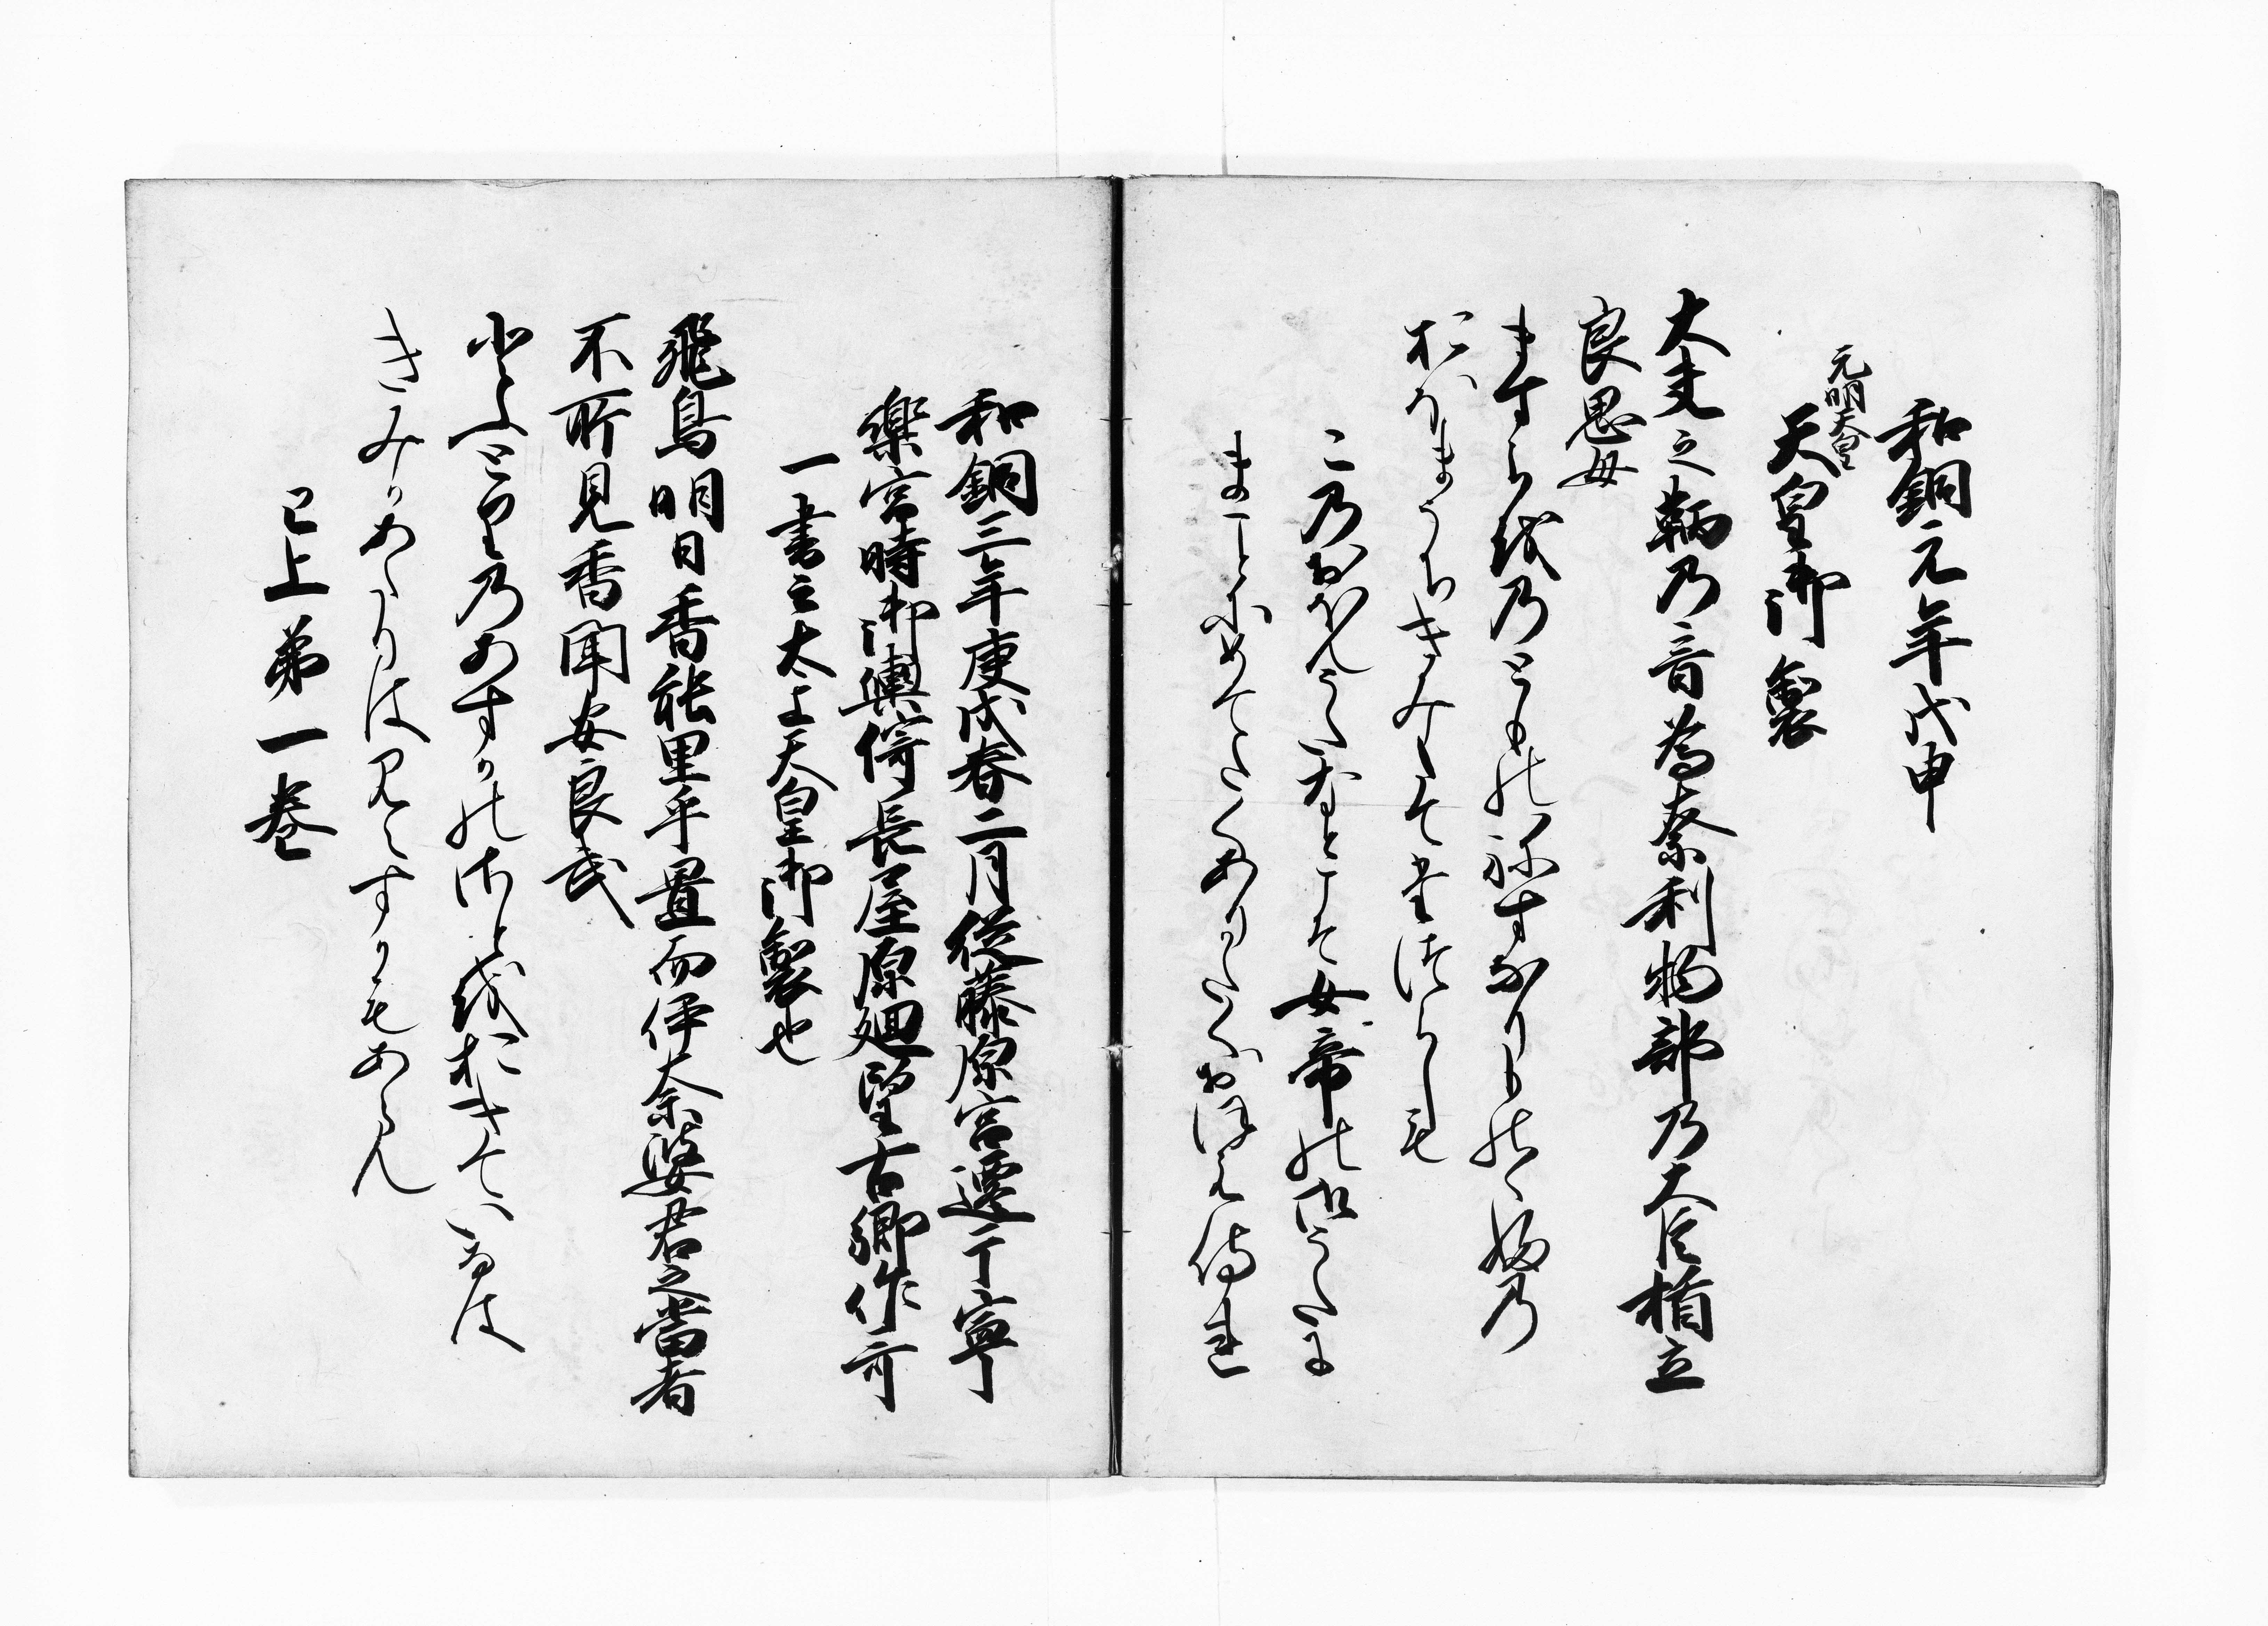 和銅元年戊申
元明天皇
天皇御製
大夫之鞆乃音為奈利物部乃大臣楯立
良思母
ますら越乃とも能祢すなりものゝふ乃
おほまうちきみたてたつらしも
この於ほんうたなとこそ女帝の御うたに
まことにめてたくありかたくおほえ侍れ
和銅三年庚戌春二月従藤原宮遷于寧
樂宮時御輿停長屋原廻望古郷作哥
一書云太上天皇御製也
飛鳥明日香能里乎置而伊奈婆君之當者
不所見香聞安良武
とふとりのあすかのさとをおきていなは
きみかあたりは見えすかもあらん
已上弟一巻